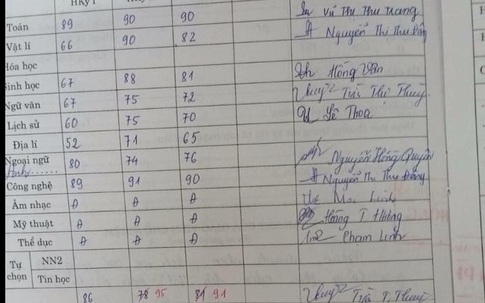 HKỳ I
Toán 89 90 90 Vũ Thị Thu Trang
Vật lí 66 90 82 Nguyễn Thị Thu
Hóa học
Sinh học 67 88 81 Hồng Vân
Ngữ văn 67 75 72 Thuý Trần Thị Thuý
Lịch sử 60 75 70 Lê Thoa
Địa lí 52 71 65
Ngoại ngữ 80 74 76 Nguyễn Hồng Quyên
Anh
Công nghệ 89 91 90 Nguyễn Thị Thu
Âm nhạc Đ Đ Đ Linh
Mỹ thuật Đ Đ Đ Hồng T. Hương
Thể dục Đ Đ Đ Phạm Linh
Tự chọn NN2
Tin học
86 78 95 81 91 Thuý Trần T. Thuý